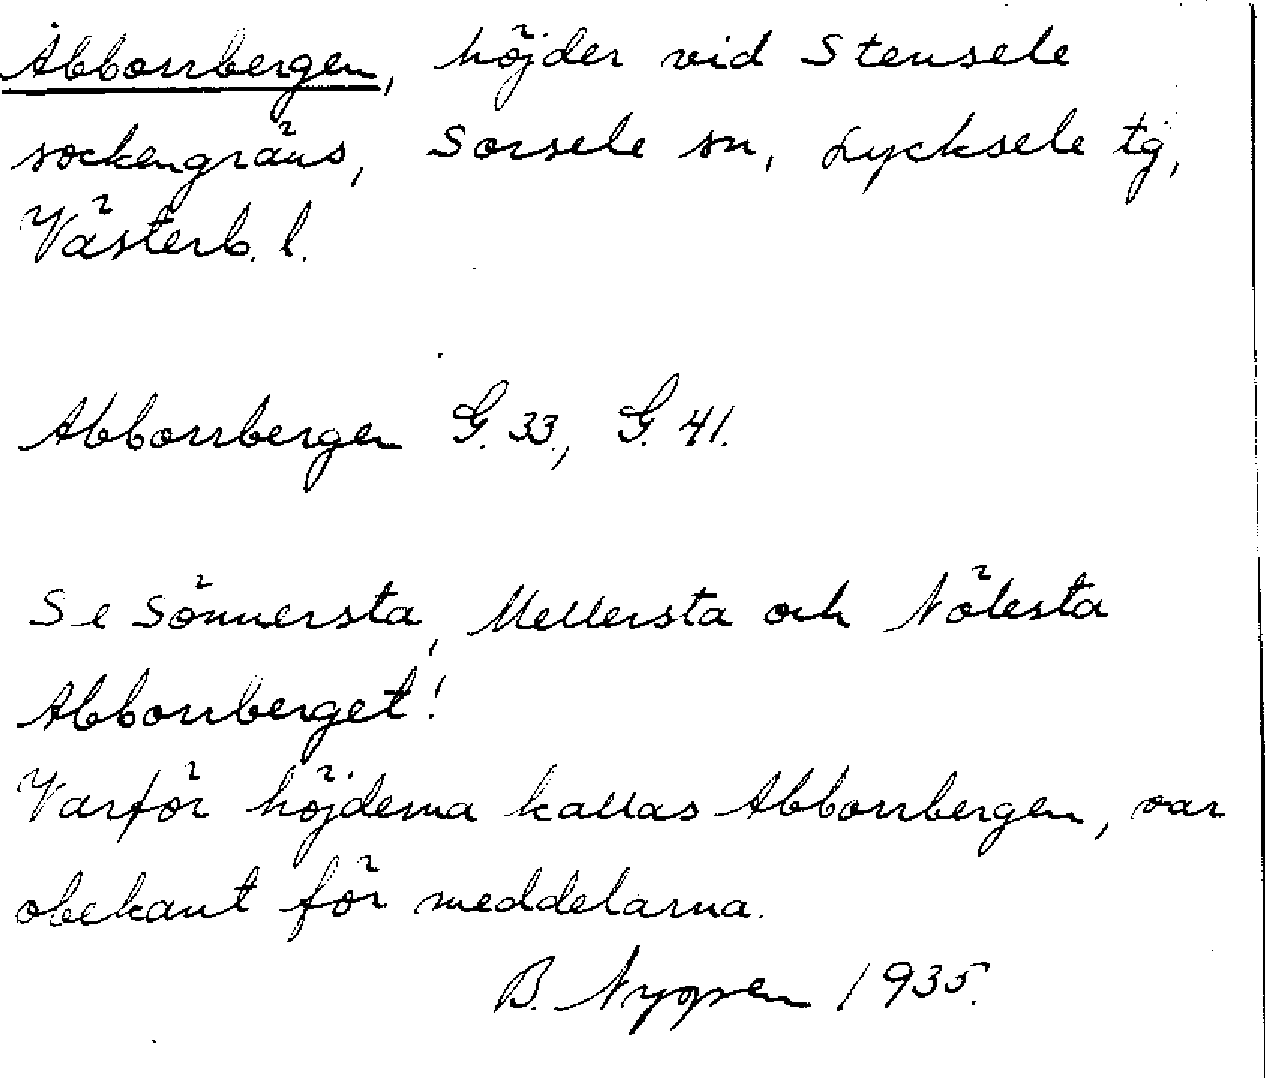 Abborrbergen, höjder vid Stensele
sockengräns, Sorsele sn, Lycksele tg,
Västerb. l.
Abborrbergen G. 33., G. 41.
Se Sönnersta, Mellersta och Nölesta
Abborrberget!
Varför höjderna kallas Abborrbergen, var
obekant för meddelarna.
B. Nygren 1935.